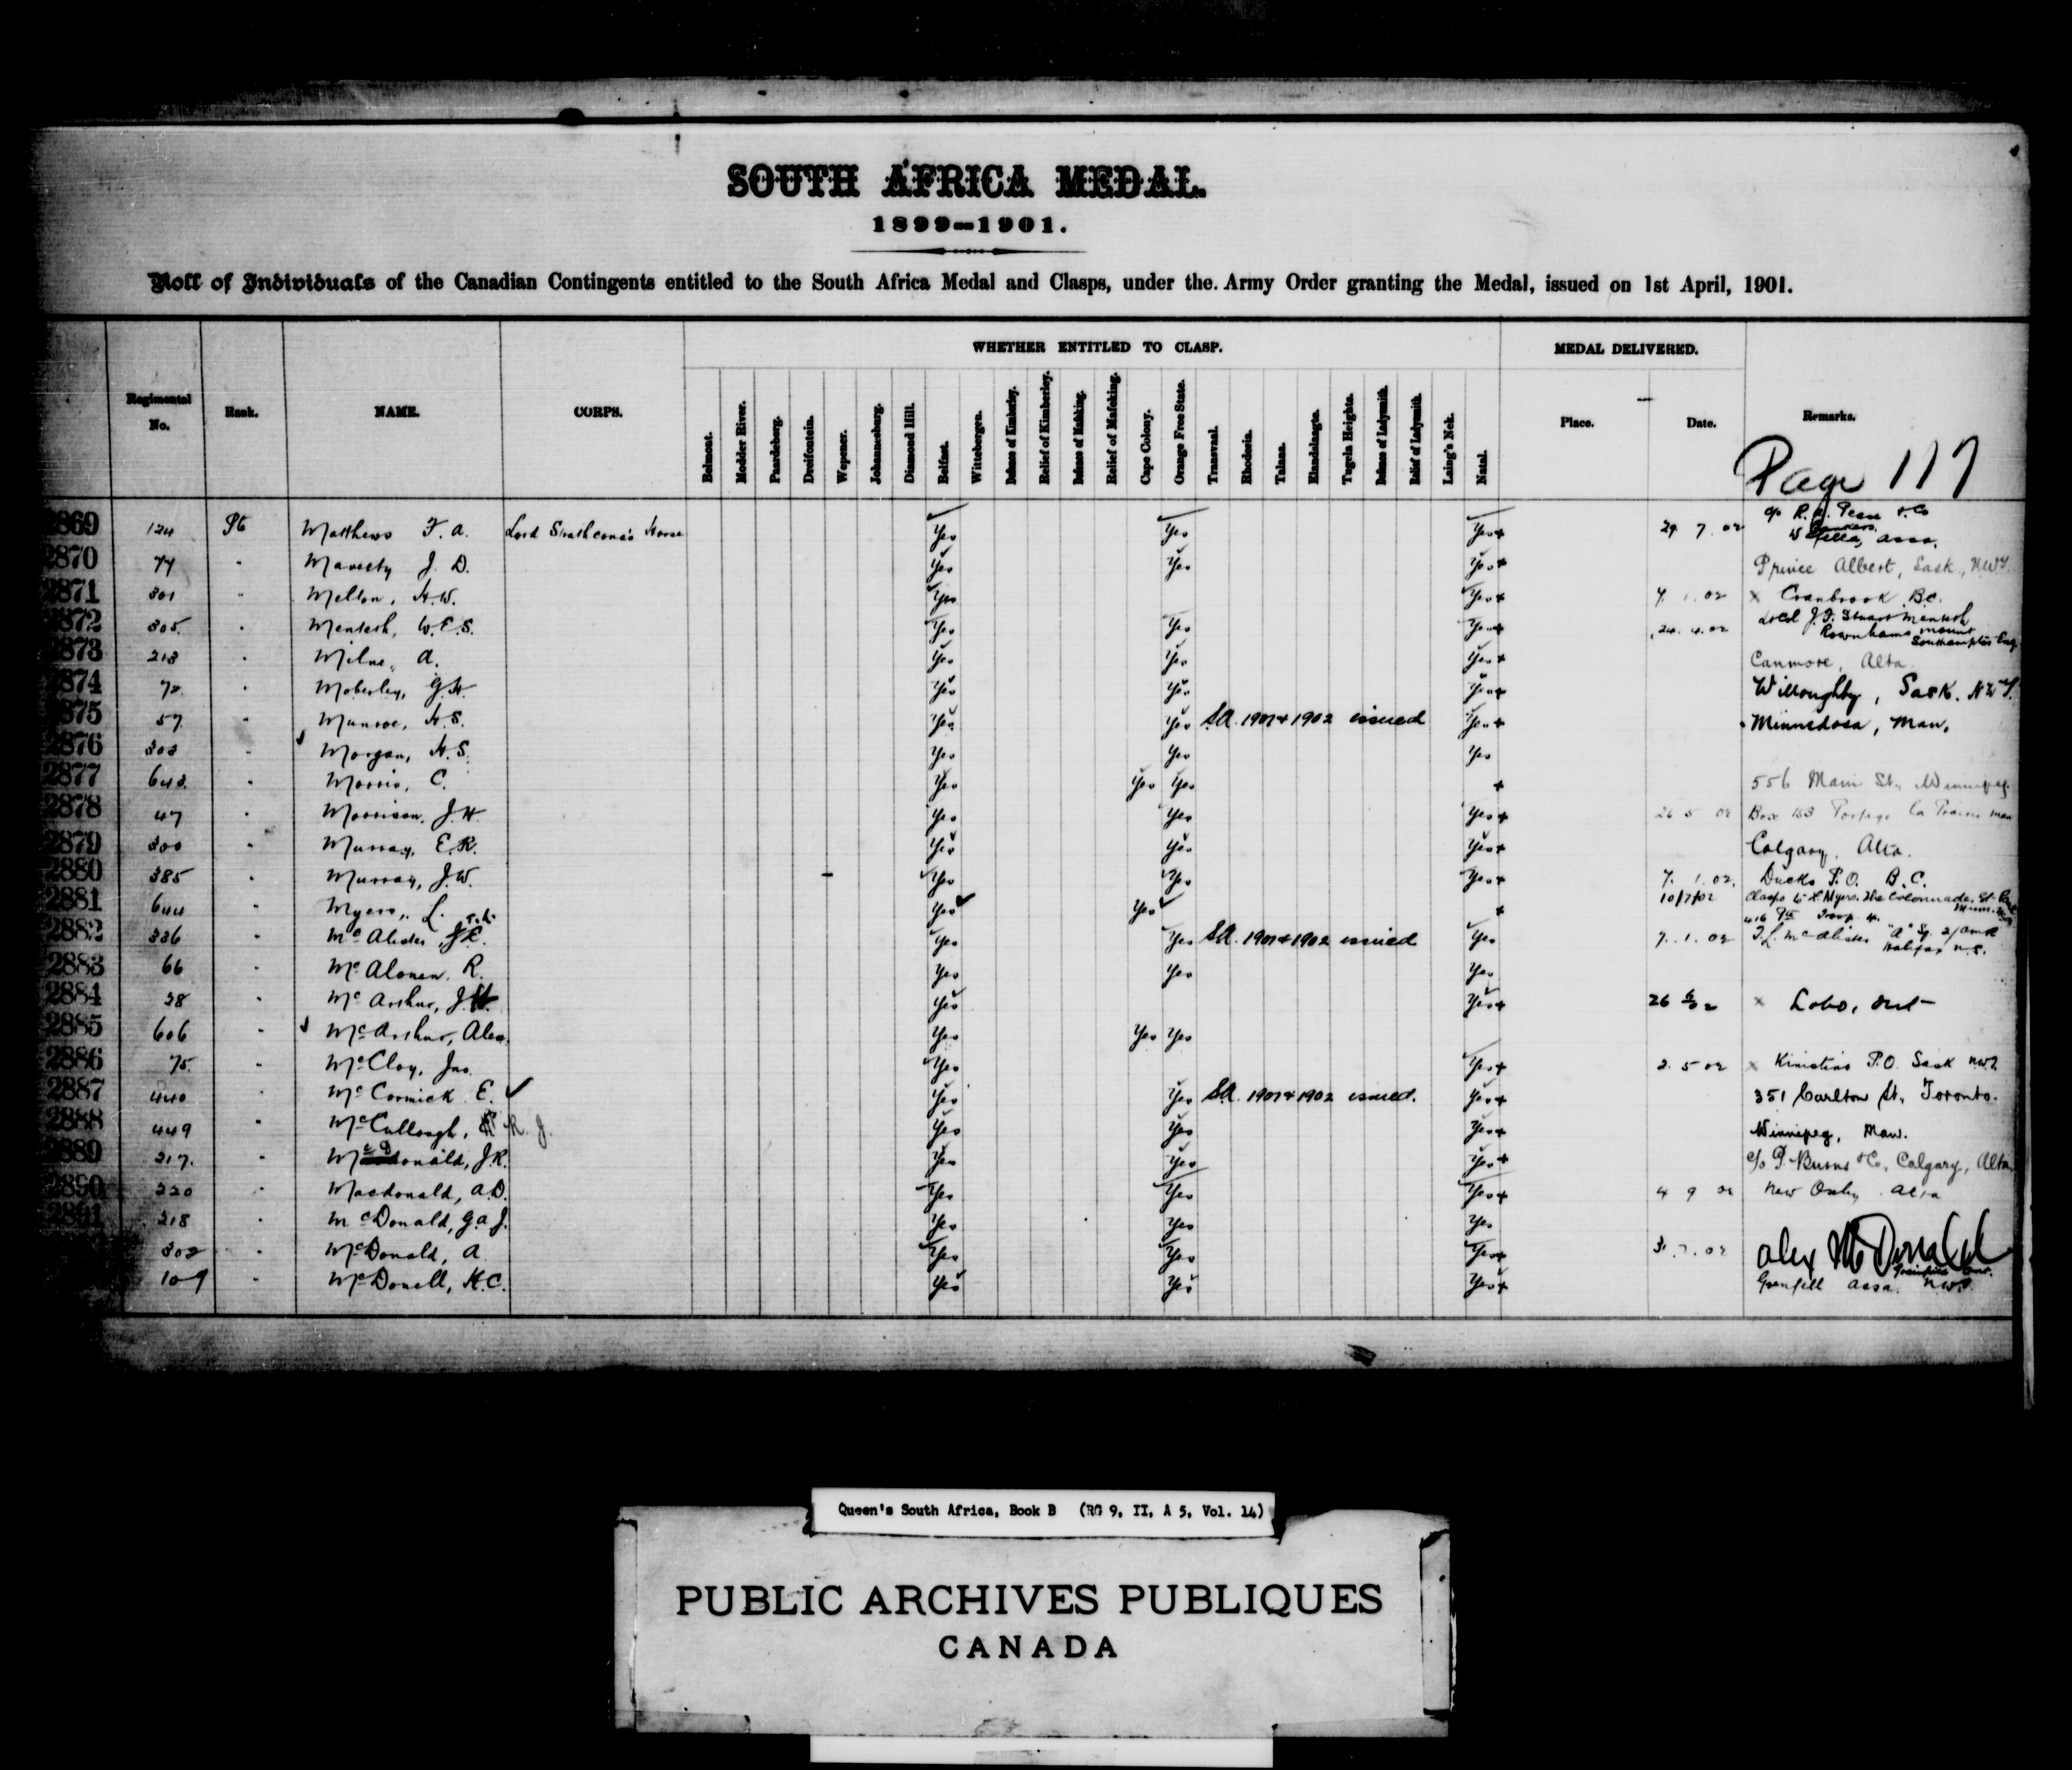 SOUTH AFRICA MEDAL.
1899-1901.
Roll of Individuals of the Canadian Contingents entitled to the South Africa Medal and Clasps, under the Army Order granting the Medal, issued on 1st April, 1901.
WHETHER ENTITLED TO CLASP. MEDAL DELIVERED.
Regimental No. Rank. NAME. CORPS. Belmont. Modder River. Paardeberg. Dreifontein. Wepener. Johannesburg. Diamond Hill. Belfast. Wittebergen. Defence of Kimberley. Relief of Kimberley. Defence of Mafeking. Relief of Mafeking. Cape Colony. Orange Free State. Transvaal. Rhodesia. Talana. Elandslaagte. Tugela Heights. Defence of Ladysmith. Relief of Ladysmith. Laing's Nek. Natal. Place. Date. Remarks.
Page 117
2869 124 Pt Matthews F. A. Lord Strathcona's Horse Yes Yes Yes+ 29 7.02 c/o & Co Assa.
2870 77 " Maveety J. D. Yes Yes Yes+ Prince Albert, Sask., NWT.
2871 301 " Mellon, H.W. Yes Yes+ 7 1.02 x Cranbrook B.C.
2872 305 " Menteth, W.F.S. Yes Yes Yes+ 24.4.02 J.F. Stuart Menteth Rownhams Mount Southampton Eng
2873 213 " Milne, A. Yes Yes Yes+ Canmore, Alta
2874 72 " Moberley, G.H. Yes Yes Yes+ Willoughby, Sask. NWT.
2875 57 " Munroe, H.S. Yes Yes S.A. 1901+1902 issued Yes+ Minnedosa, Man.
2876 303 " Morgan, H.S. Yes Yes Yes
2877 643 " Morris, C. Yes Yes Yes + 556 Main St., Winnipeg.
2878 47 " Morrison, J.H. Yes Yes Yes+ 26 5 02 Box 163 Portage la Prairie Man
2879 300 " Murray, E.R. Yes Yes Yes+ Calgary, Alta.
2880 385 " Murray, J.W. Yes Yes Yes+ 7. 1.02. Ducks P.O. B.C.
2881 644 " Myers, L. Yes Yes + 10/7/02 Clasps to L Myers. The Colonnade, St. Paul Minn.
2882 336 " McAlister, J.C. T.L. Yes Yes S.A. 1901+1902 issued Yes 7.1.02 416 Troop 4. "A" Sq. 2/CMR T.L. McAlister Halifax N.S.
2883 66 " McAlonen. R. Yes Yes Yes
2884 38 " McArthur, J.H. Yes Yes+ 26 x Lobo, Ont
2885 606 " McArthur, Alex. Yes Yes Yes
2886 75 " McCloy, Jno. Yes Yes+ 2.5 02 x Kinistino P.O. Sask NWT.
2887 440 " McCormick E. Yes Yes S.A. 1901+1902 issued. Yes+ 351 Carlton St., Toronto.
2888 449 " McCullough, R. J. Yes Yes Yes+ Winnipeg, Man.
2889 217. " McDonald, J.R. Yes Yes Yes+ c/o P. Burns & Co, Calgary, Alta.
2890 220 " Macdonald, A.D. Yes Yes Yes+ 4 9 02 New Oxley Alta
2891 218 " McDonald, G.A.J. Yes Yes Yes
302 " McDonald, A. Yes Yes Yes+ 31.7.02 Alex McDonald
109 " McDonell, H.C. Yes Yes Yes+ Grenfell Assa. NWT.
Queen's South Africa, Book B (RG 9, II, A 5, Vol. 14)
PUBLIC ARCHIVES PUBLIQUES
CANADA